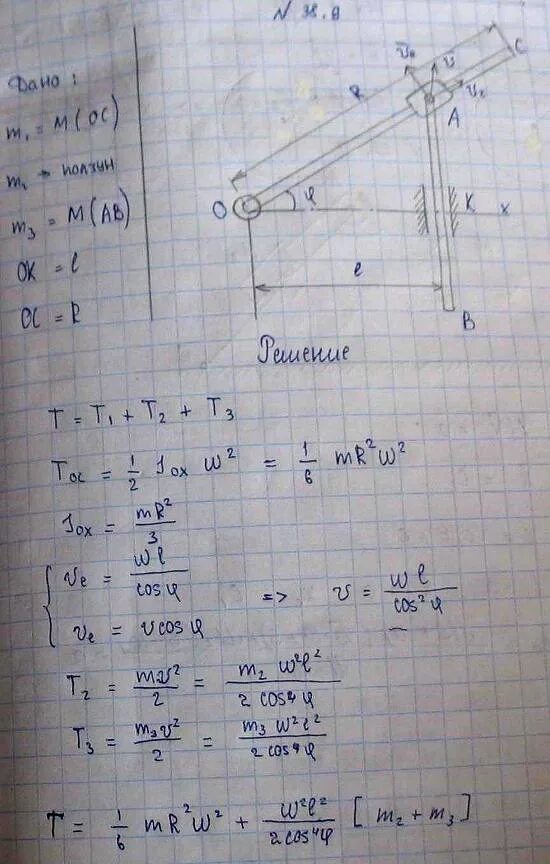 N 38.9
Дано:
m₁ = M(OC)
m₂ → ползун
m₃ = M(AB)
OK = l
OC = R
O
φ
R
v
C
A
K
x
l
B
Решение
T = T₁ + T₂ + T₃
Toc = 1/2 Jox ω² = 1/6 mR²ω²
Jox = mR²/3
{ ve = ωl/cosφ
ve = v cosφ => v = ωl/cos²φ
T₂ = m₂v²/2 = m₂ω²l²/2cos⁴φ
T₃ = m₃v²/2 = m₃ω²l²/2cos⁴φ
T = 1/6 mR²ω² + ω²l²/2cos⁴φ [m₂ + m₃]